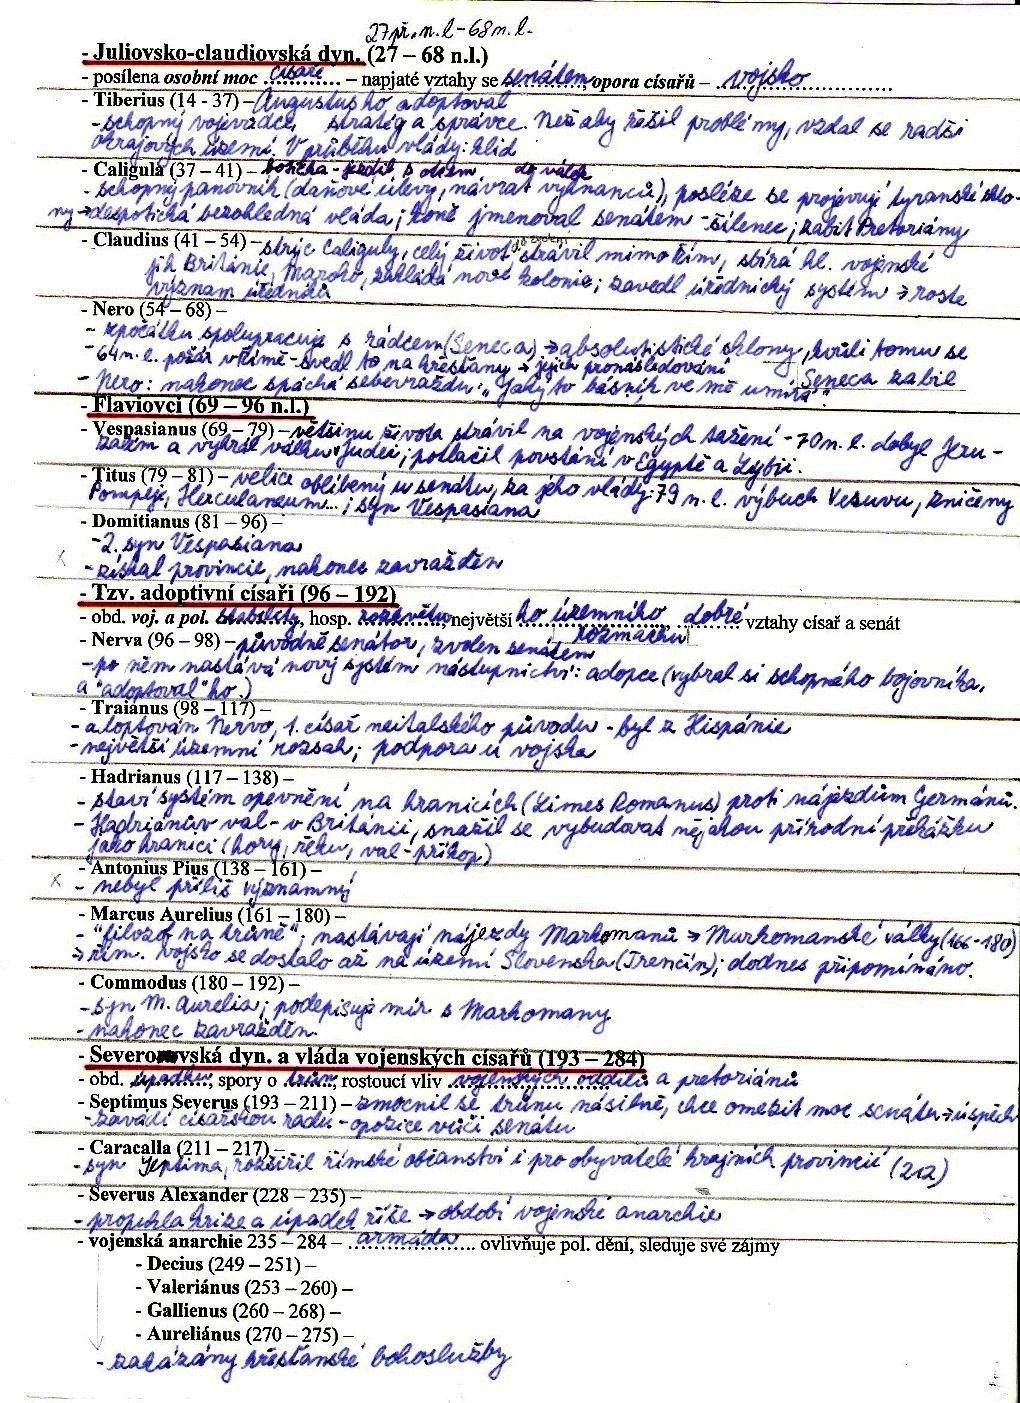 27 př. n. l - 68 n. l.
- Juliovsko-claudiovská dyn. (27 – 68 n.l.)
- posílena osobní moc císaře – napjaté vztahy se senátem, opora císařů – vojsko
- Tiberius (14 - 37) – Augustus ho adoptoval
- schopný vojevůdce, stratég a správce. Než aby řešil problémy, vzdal se radši
okrajových území. V průběhu vlády: klid
- Caligula (37 – 41) – botička - jezdil s otcem do válek
- schopný panovník (daňové úlevy, návrat vyhnanců), posléze se projevují tyranské sklo-
ny → despotická bezohledná vláda; koně jmenoval senátem - šílenec; zabit Pretoriány
- Claudius (41 – 54) – strýc Caliguly, celý život strávil mimo Řím, sbírá hl. vojenské
jih Británie, Maroko, zakládá nové kolonie; zavedl úřednický systém → roste
význam úředníků
- Nero (54 – 68) –
- zpočátku spolupracuje s rádcem (Seneca) → absolutistické sklony, kvůli tomu se
- 64 n. l. požár v Římě - svedl to na křesťany → jejich pronásledování
Seneca zabil
- Nero: nakonec spáchá sebevraždu: "Jaký to básník ve mě umírá".
- Flaviovci (69 – 96 n.l.)
- Vespasianus (69 – 79) – většinu života strávil na vojenských tažení - 70 n. l. dobyl Jeru-
zalém a vyhrál válku v Judei; potlačil povstání v Egyptě a Lybii.
- Titus (79 – 81) – velice oblíbený u senátu, za jeho vlády: 79 n. l. výbuch Vesuvu, zničeny
Pompeje, Herculaneum...; syn Vespasiana
- Domitianus (81 – 96) –
- 2. syn Vespasiana
x
- získal provincie, nakonec zavražděn
- Tzv. adoptivní císaři (96 – 192)
- obd. voj. a pol. stability, hosp. rozkvětu, největšího územního rozmachu, dobré vztahy císař a senát
- Nerva (96 – 98) – původně senátor, zvolen senátem
- po něm nastává nový systém nástupnictví: adopce (vybral si schopného bojovníka,
a "adoptoval" ho.)
- Traiánus (98 – 117) –
- adoptován Nervo, 1. císař neitalského původu - byl z Hispánie
- největší územní rozsah; podpora u vojska
- Hadrianus (117 – 138) –
- staví systém opevnění na hranicích (Limes Romanus) proti nájezdům Germánů.
- Hadriánův val - v Británii, snažil se vybudovat nějakou přírodní překážku
jako hranici (hory, řeku, val - příkop)
- Antonius Pius (138 – 161) –
x - nebyl příliš významný
- Marcus Aurelius (161 – 180) –
- "filozof na trůně"; nastávají nájezdy Markomanů → Markomanské války (166 - 180)
→ řím. vojsko se dostalo až na území Slovenska (Trenčín); dodnes připomínáno.
- Commodus (180 – 192) –
- syn M. Aurelia; podepisuje mír s Markomany
- nakonec zavražděn.
- Severovská dyn. a vláda vojenských císařů (193 – 284)
- obd. úpadku, spory o trůn, rostoucí vliv vojenských oddílů a pretoriánů
- Septimus Severus (193 – 211) – zmocnil se trůnu násilně, chce omezit moc senátu → úspěch
- zavádí císařskou radu - opozice vůči senátu
- Caracalla (211 – 217) –
- syn Septima, rozšířil římské občanství i pro obyvatelé krajních provincií (212)
- Severus Alexander (228 – 235) –
- propukla krize a úpadek říše → období vojenské anarchie
- vojenská anarchie 235 – 284 – armáda ovlivňuje pol. dění, sleduje své zájmy
- Decius (249 – 251) –
- Valeriánus (253 – 260) –
- Gallienus (260 – 268) –
- Aureliánus (270 – 275) –
- zakázány křesťanské bohoslužby